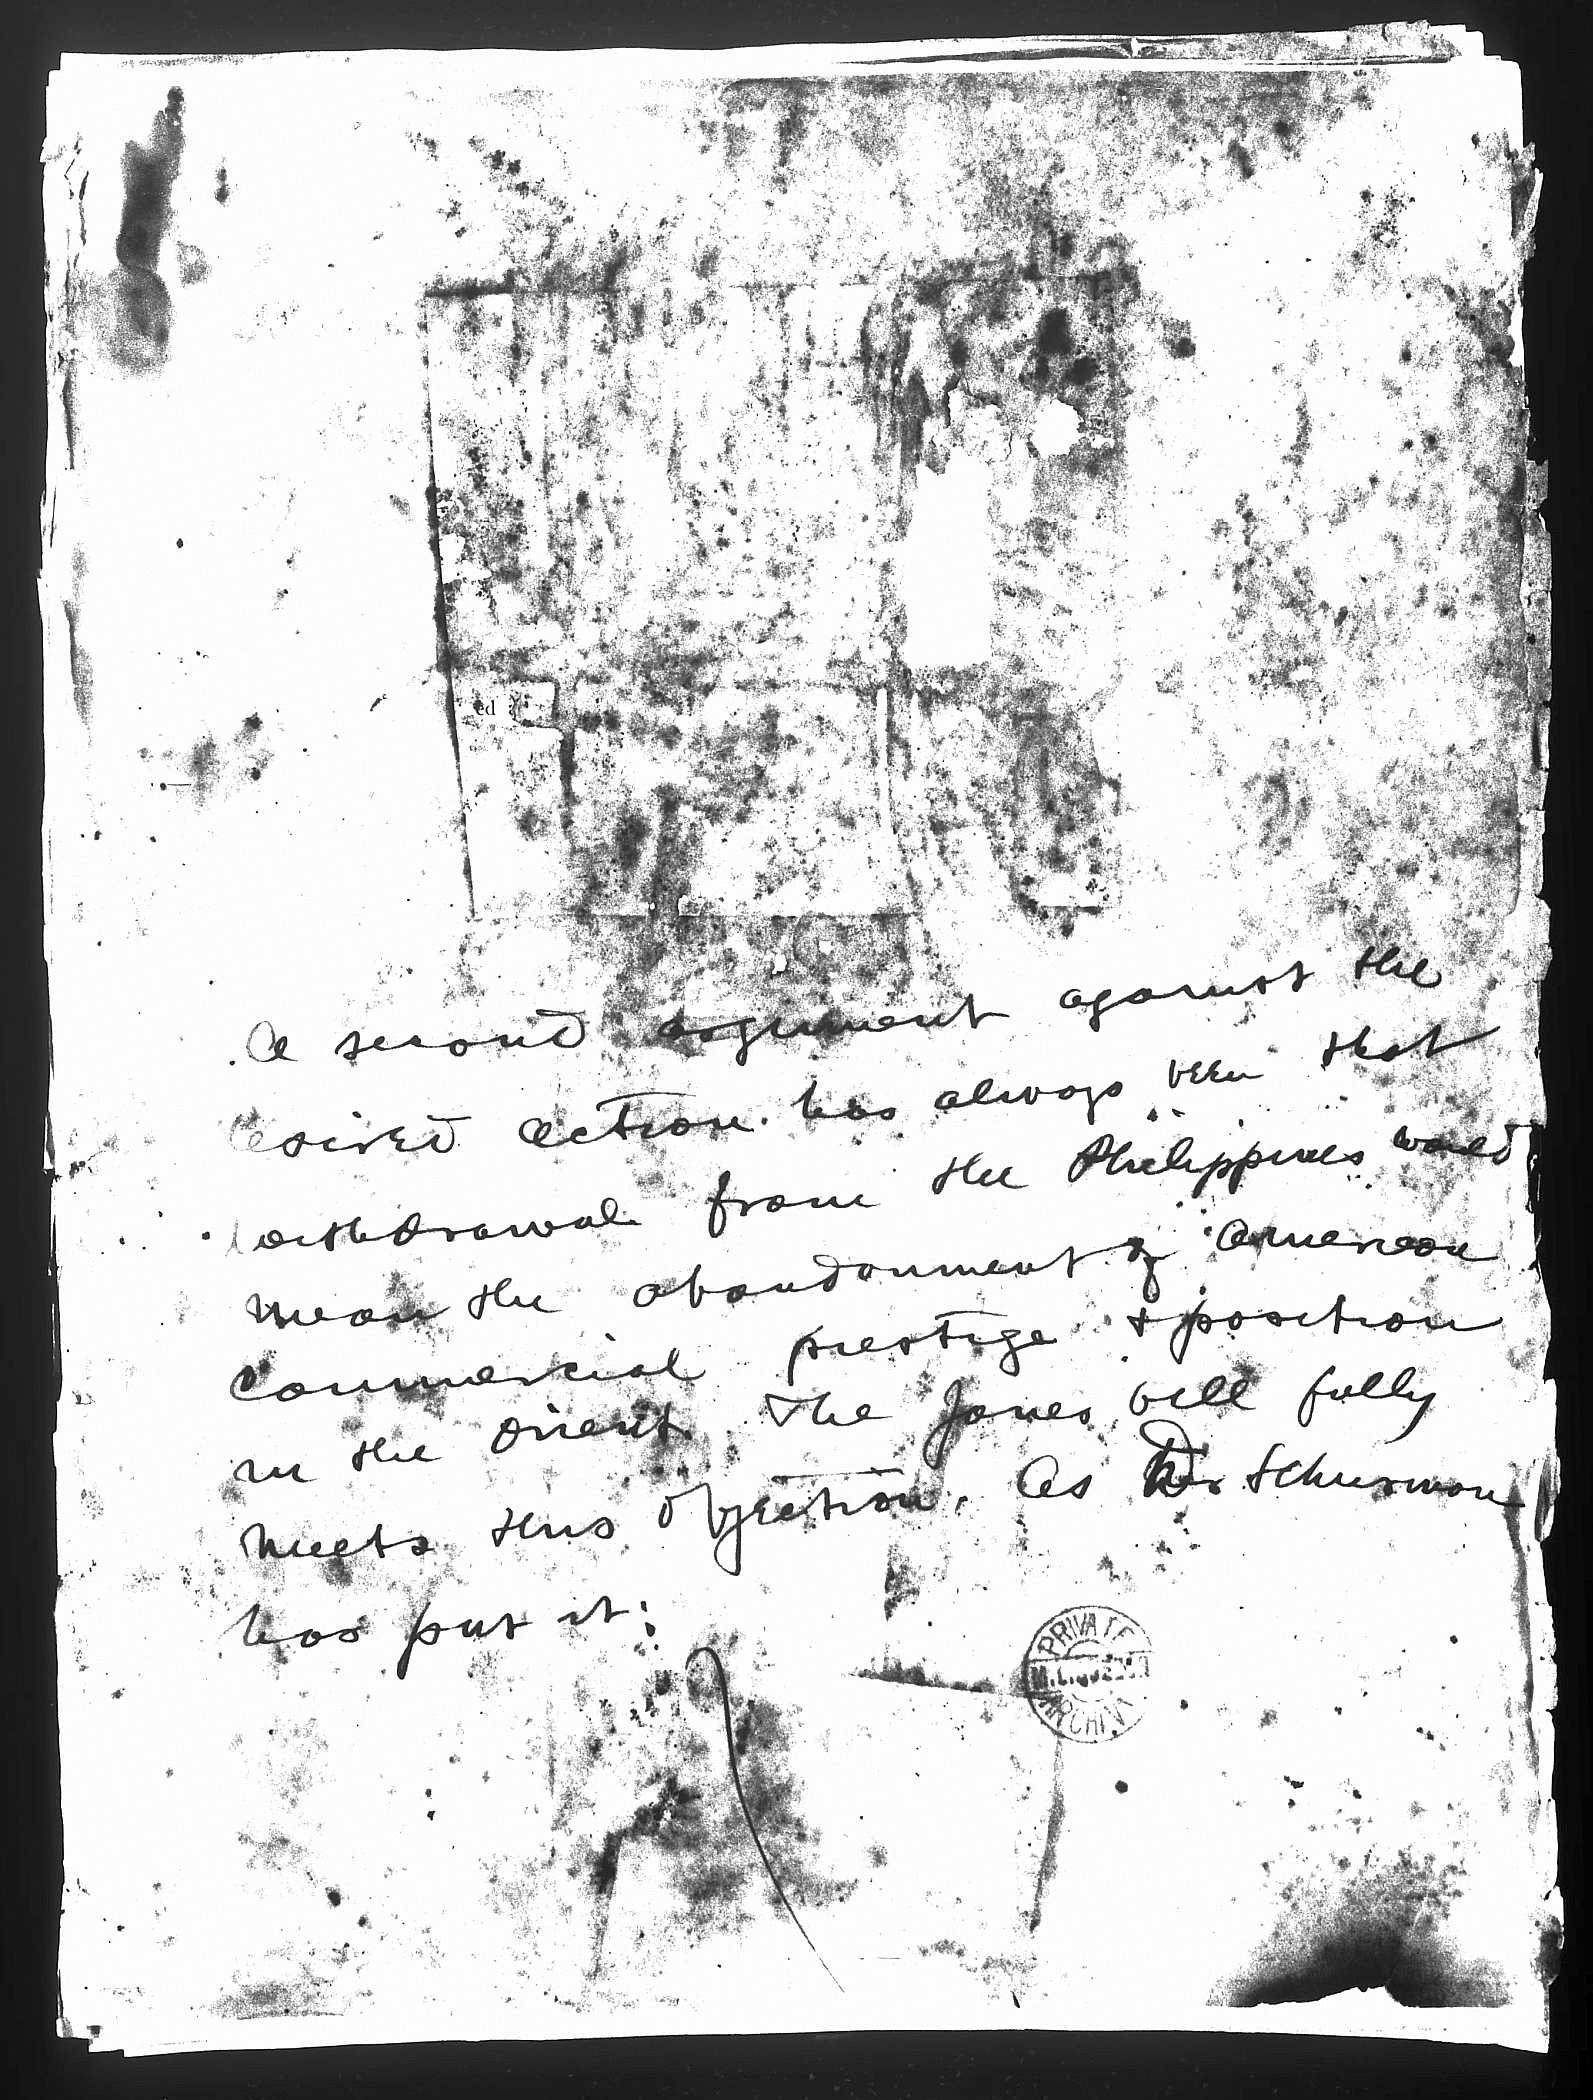 ed :
A second argument against the
desired action has always been that
withdrawal from the Philippines would
mean the abandonment of American
Commercial prestige & position
in the Orient. The Jones bill fully
meets this objection. As Dr Schurman
has put it:
PRIVATE
ARCHIV